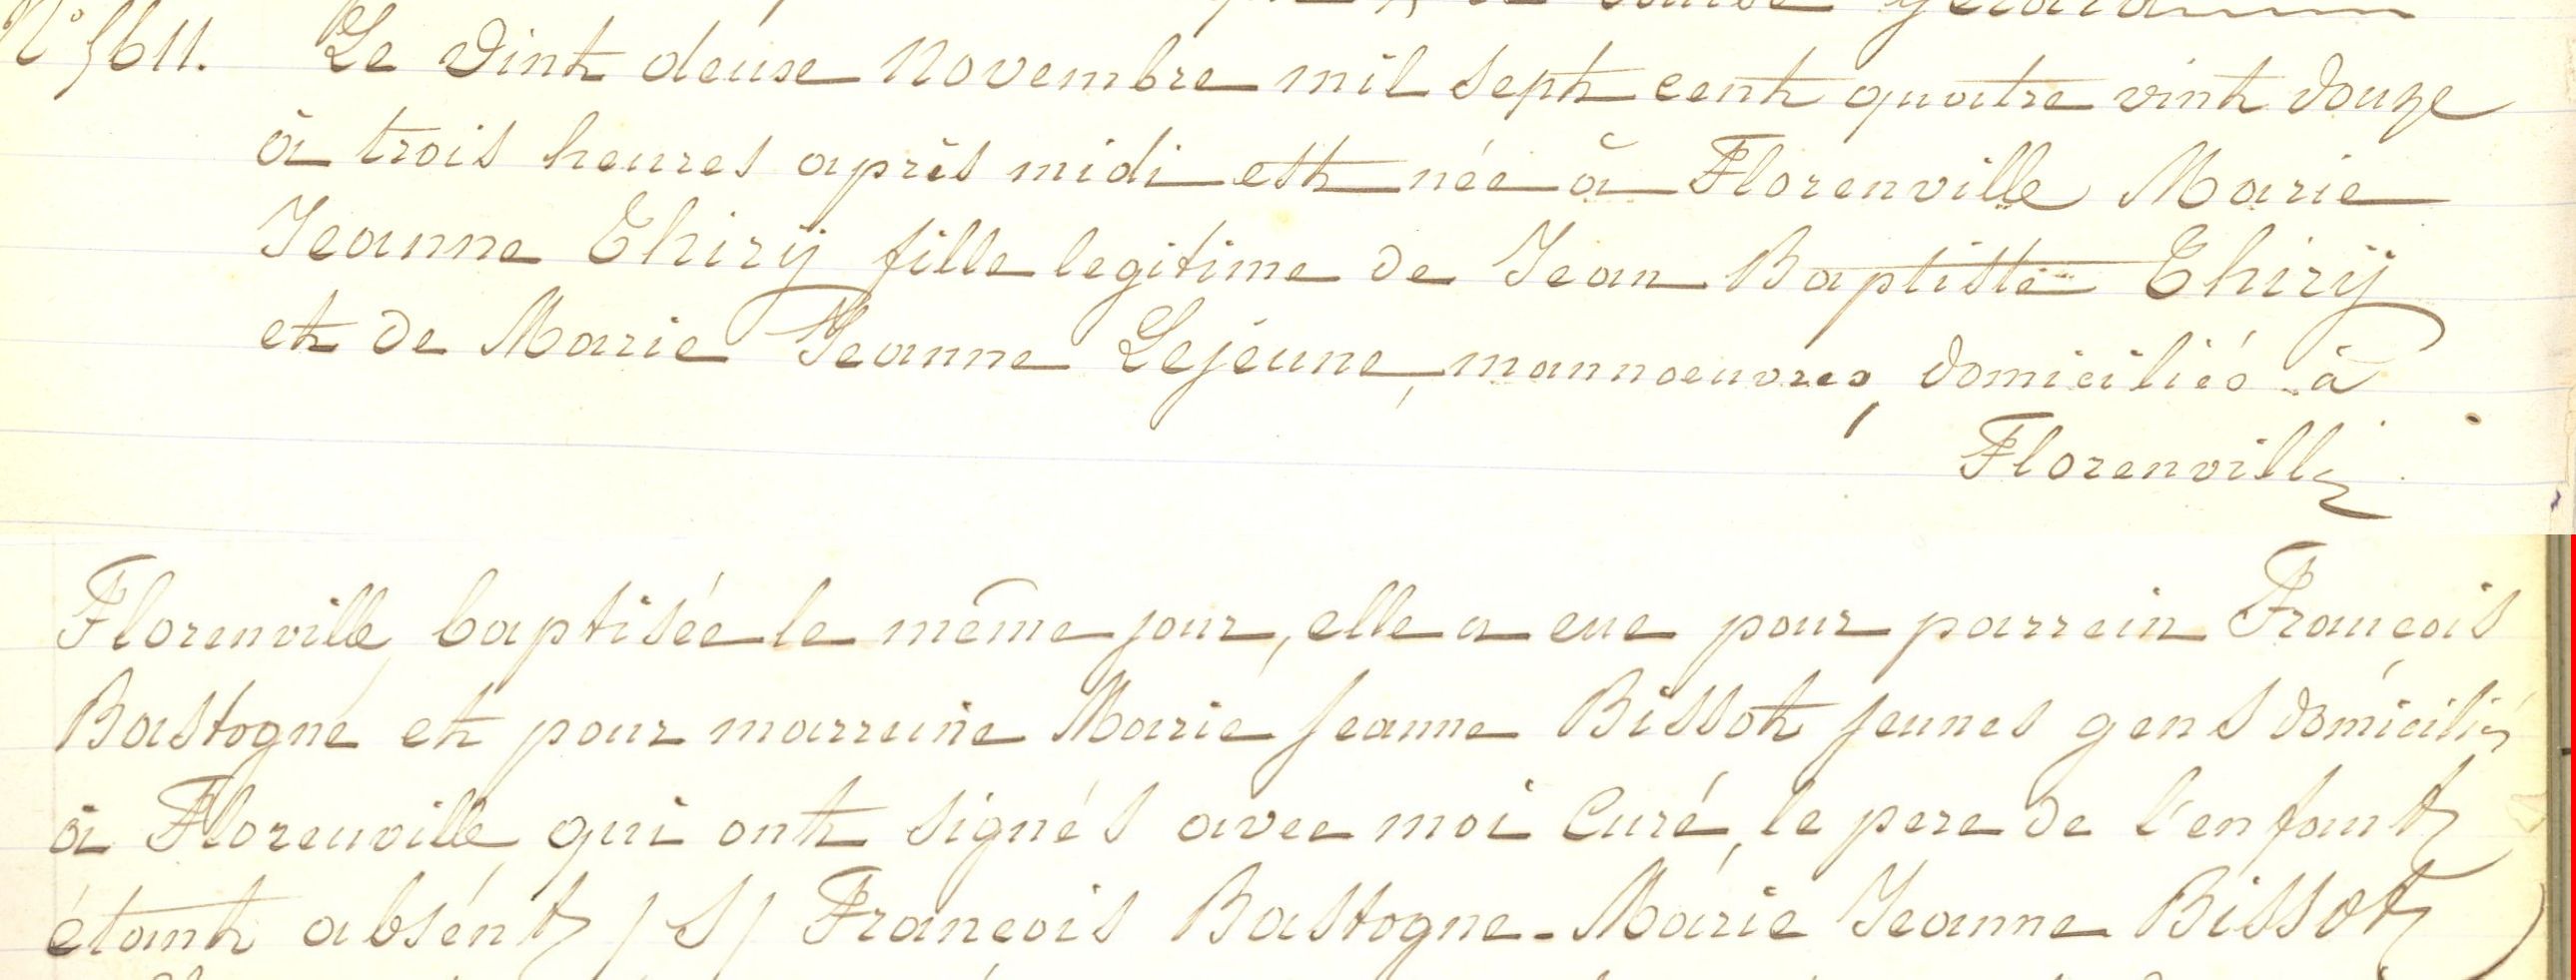 N° 5611. Le vint deuse Novembre mil sept cent quatre vint douze
à trois heures après midi est née à Florenville Marie
Jeanne Thirÿ fille legitime de Jean Baptiste Thirÿ
et de Marie Jeanne Lejeune, mannoeuvres, domiciliés à
Florenville
Florenville, baptisée le même jour, elle a eue pour parrein François
Bastogne et pour marreine Marie Jeanne Bissot jeunes gens domiciliés
à Florenville, qui ont signés avec moi Curé, le pere de l'enfant
étant absént /S/ François Bastogne - Marie Jeanne Bissot